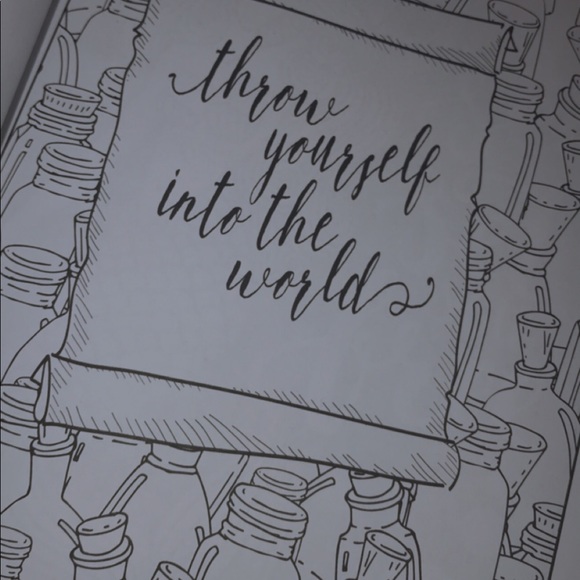 throw
yourself
into the
world